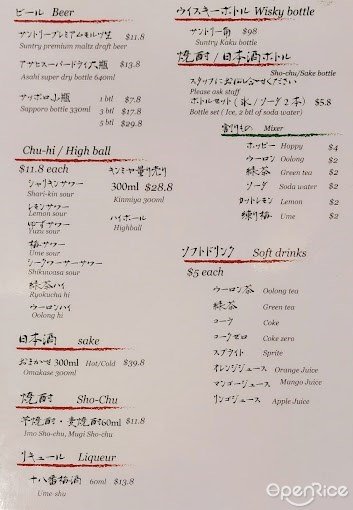 ビール Beer
サントリープレミアムモルツ生 $11.8
Suntry premium maltz draft beer
アサヒスーパードライ大瓶 $13.8
Asahi super dry bottle 640ml
サッポロ小瓶 1 btl $7.8
Sapporo bottle 330ml 3 btl $17.8
5 btl $29.8
Chu-hi / High ball
$11.8 each
シャリキンサワー
Shari-kin sour
レモンサワー
Lemon sour
ゆずサワー
Yuzu sour
梅サワー
Ume sour
シークワーサーサワー
Shikuwasa sour
緑茶ハイ
Ryokucha hi
ウーロンハイ
Oolong hi
キンミヤ量り売り
300ml $28.8
Kinmiya 300ml
ハイボール
Highball
日本酒 sake
おまかせ 300ml Hot/Cold $39.8
Omakase 300ml
焼酎 Sho-Chu
芋焼酎・麦焼酎60ml $11.8
Imo Sho-chu, Mugi Sho-chu
リキュール Liqueur
十八番梅酒 60ml $13.8
Ume-shu
ウイスキーボトル Wisky bottle
サントリー角 $98
Suntry Kaku bottle
焼酎/日本酒ボトル
Sho-chu/Sake bottle
スタッフにお尋ねください
Please ask staff
ボトルセット(氷/ソーダ2本) $5.8
Bottle set ( Ice, 2 btl of soda water)
割りもの Mixer
ホッピー Hoppy $4
ウーロン Oolong $2
緑茶 Green tea $2
ソーダ Soda water $2
カットレモン Lemon $2
練り梅 Ume $2
ソフトドリンク Soft drinks
$5 each
ウーロン茶 Oolong tea
緑茶 Green tea
コーク Coke
コークゼロ Coke zero
スプライト Sprite
オレンジジュース Orange Juice
マンゴージュース Mango Juice
リンゴジュース Apple Juice
OpenRice